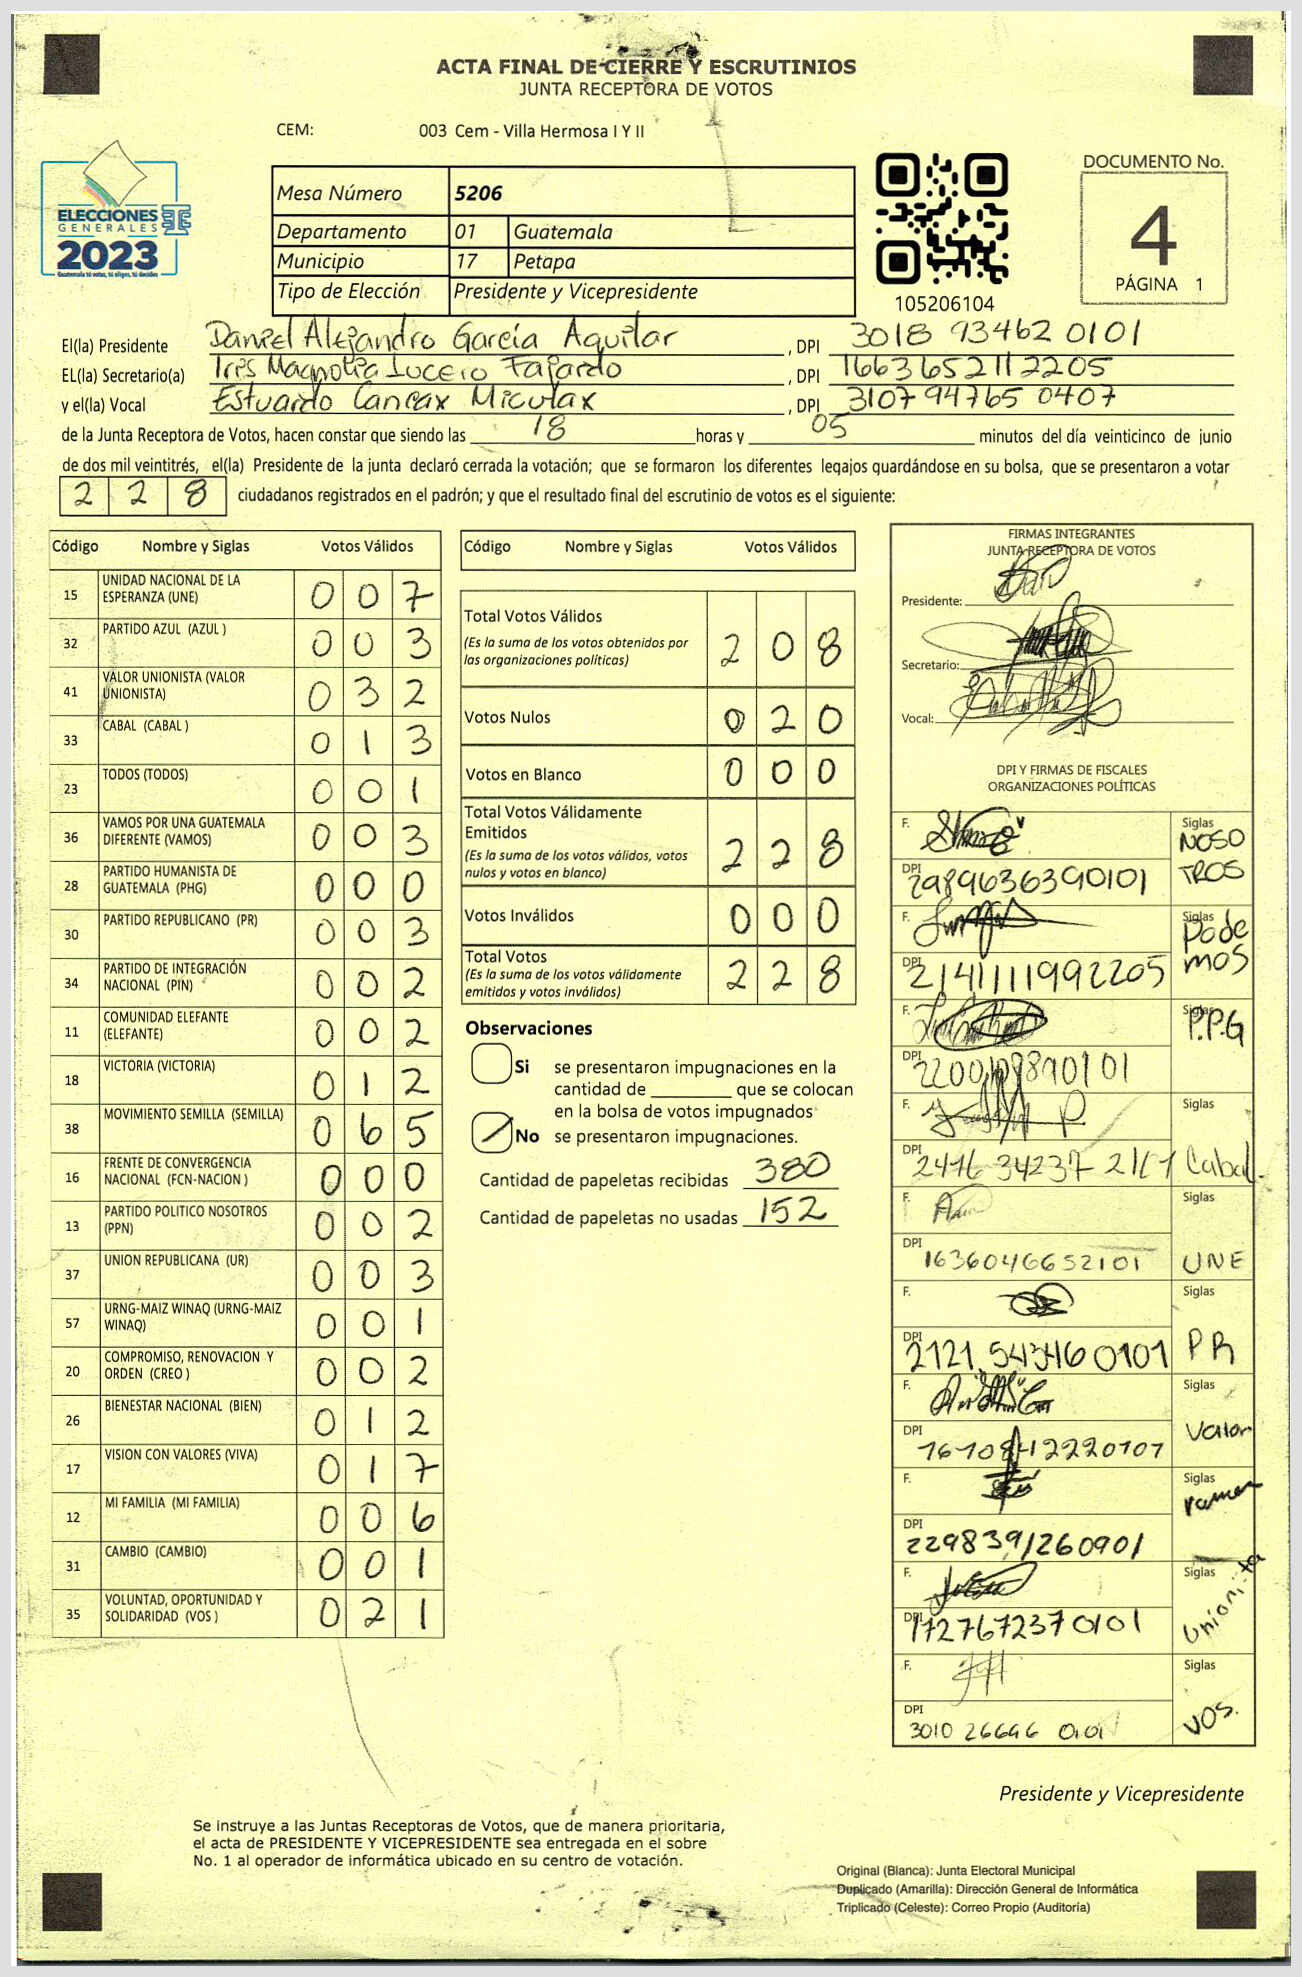 ACTA FINAL DE CIERRE Y ESCRUTINIOS
JUNTA RECEPTORA DE VOTOS
CEM: 003 Cem - Villa Hermosa I Y II
ELECCIONES
GENERALES
2023
Guatemala tú votas, tú eliges, tú decides
Mesa Número 5206
Departamento 01 Guatemala
Municipio 17 Petapa
Tipo de Elección Presidente y Vicepresidente
105206104
DOCUMENTO No.
4
PÁGINA 1
El(la) Presidente Daniel Alejandro García Aguilar, DPI 3018 93462 0101
EL(la) Secretario(a) Iris Magnolia Lucero Fajardo, DPI 1663652112205
y el(la) Vocal Estuardo Canrax Miculax, DPI 3107 94765 0407
de la Junta Receptora de Votos, hacen constar que siendo las 18 horas y 05 minutos del día veinticinco de junio
de dos mil veintitrés, el(la) Presidente de la junta declaró cerrada la votación; que se formaron los diferentes legajos guardándose en su bolsa, que se presentaron a votar
2 2 8 ciudadanos registrados en el padrón; y que el resultado final del escrutinio de votos es el siguiente:
Código Nombre y Siglas Votos Válidos
15 UNIDAD NACIONAL DE LA ESPERANZA (UNE) 0 0 7
32 PARTIDO AZUL (AZUL ) 0 0 3
41 VALOR UNIONISTA (VALOR UNIONISTA) 0 3 2
33 CABAL (CABAL ) 0 1 3
23 TODOS (TODOS) 0 0 1
36 VAMOS POR UNA GUATEMALA DIFERENTE (VAMOS) 0 0 3
28 PARTIDO HUMANISTA DE GUATEMALA (PHG) 0 0 0
30 PARTIDO REPUBLICANO (PR) 0 0 3
34 PARTIDO DE INTEGRACIÓN NACIONAL (PIN) 0 0 2
11 COMUNIDAD ELEFANTE (ELEFANTE) 0 0 2
18 VICTORIA (VICTORIA) 0 1 2
38 MOVIMIENTO SEMILLA (SEMILLA) 0 6 5
16 FRENTE DE CONVERGENCIA NACIONAL (FCN-NACION ) 0 0 0
13 PARTIDO POLITICO NOSOTROS (PPN) 0 0 2
37 UNION REPUBLICANA (UR) 0 0 3
57 URNG-MAIZ WINAQ (URNG-MAIZ WINAQ) 0 0 1
20 COMPROMISO, RENOVACION Y ORDEN (CREO ) 0 0 2
26 BIENESTAR NACIONAL (BIEN) 0 1 2
17 VISION CON VALORES (VIVA) 0 1 7
12 MI FAMILIA (MI FAMILIA) 0 0 6
31 CAMBIO (CAMBIO) 0 0 1
35 VOLUNTAD, OPORTUNIDAD Y SOLIDARIDAD (VOS ) 0 2 1
Código Nombre y Siglas Votos Válidos
Total Votos Válidos 2 0 8
(Es la suma de los votos obtenidos por
las organizaciones políticas)
Votos Nulos 0 2 0
Votos en Blanco 0 0 0
Total Votos Válidamente
Emitidos 2 2 8
(Es la suma de los votos válidos, votos
nulos y votos en blanco)
Votos Inválidos 0 0 0
Total Votos 2 2 8
(Es la suma de los votos válidamente
emitidos y votos inválidos)
Observaciones
Si se presentaron impugnaciones en la
cantidad de ________ que se colocan
en la bolsa de votos impugnados
No se presentaron impugnaciones.
Cantidad de papeletas recibidas 380
Cantidad de papeletas no usadas 152
FIRMAS INTEGRANTES
JUNTA RECEPTORA DE VOTOS
Presidente:
Secretario:
Vocal:
DPI Y FIRMAS DE FISCALES
ORGANIZACIONES POLÍTICAS
F. Siglas NOSO
DPI 2989636390101 TROS
F. Siglas Pode
DPI 2141111992205 mos
F. Siglas P.P.G
DPI
F. Siglas
DPI 2416 34237 Cabal.
F. Siglas
DPI 1636046652101 UNE
F. Siglas
DPI 2121 54346 0101 PR
F. Siglas
DPI Valor
F. Siglas
DPI 2298391260901
F. Siglas
DPI 1727672370101 Unionista
F. Siglas
DPI 3010 26646 0101 VOS.
Presidente y Vicepresidente
Se instruye a las Juntas Receptoras de Votos, que de manera prioritaria,
el acta de PRESIDENTE Y VICEPRESIDENTE sea entregada en el sobre
No. 1 al operador de informática ubicado en su centro de votación.
Original (Blanca): Junta Electoral Municipal
Duplicado (Amarilla): Dirección General de Informática
Triplicado (Celeste): Correo Propio (Auditoría)